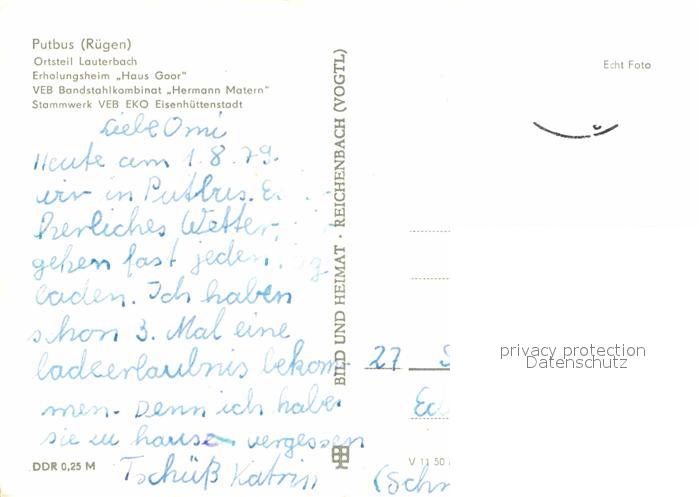 Putbus (Rügen)
Ortsteil Lauterbach
Erholungsheim „Haus Goor"
VEB Bandstahlkombinat „Hermann Matern"
Stammwerk VEB EKO Eisenhüttenstadt
Liebe Omi
Heute am 1.8.79.
wir in Putbus. E
herliches Wetter,
gehen fast jeden
baden. Ich haben
schon 3. Mal eine
badeerlaubnis bekom
men. Denn ich habe
sie zu hause vergessen
Tschüß Katrin
DDR 0,25 M
BILD UND HEIMAT · REICHENBACH (VOGTL)
Echt Foto
27 S
Ed
(Schr
V 11 50
privacy protection
Datenschutz